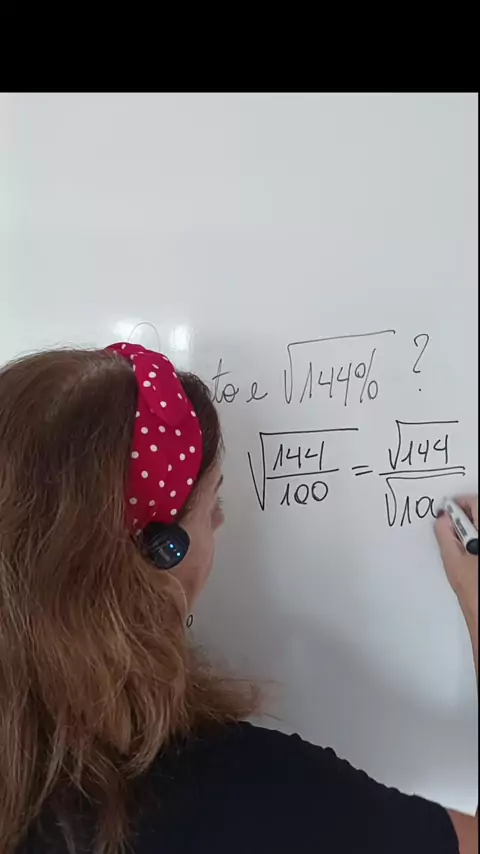 to e √144% ?
√144/100 = √144/√100